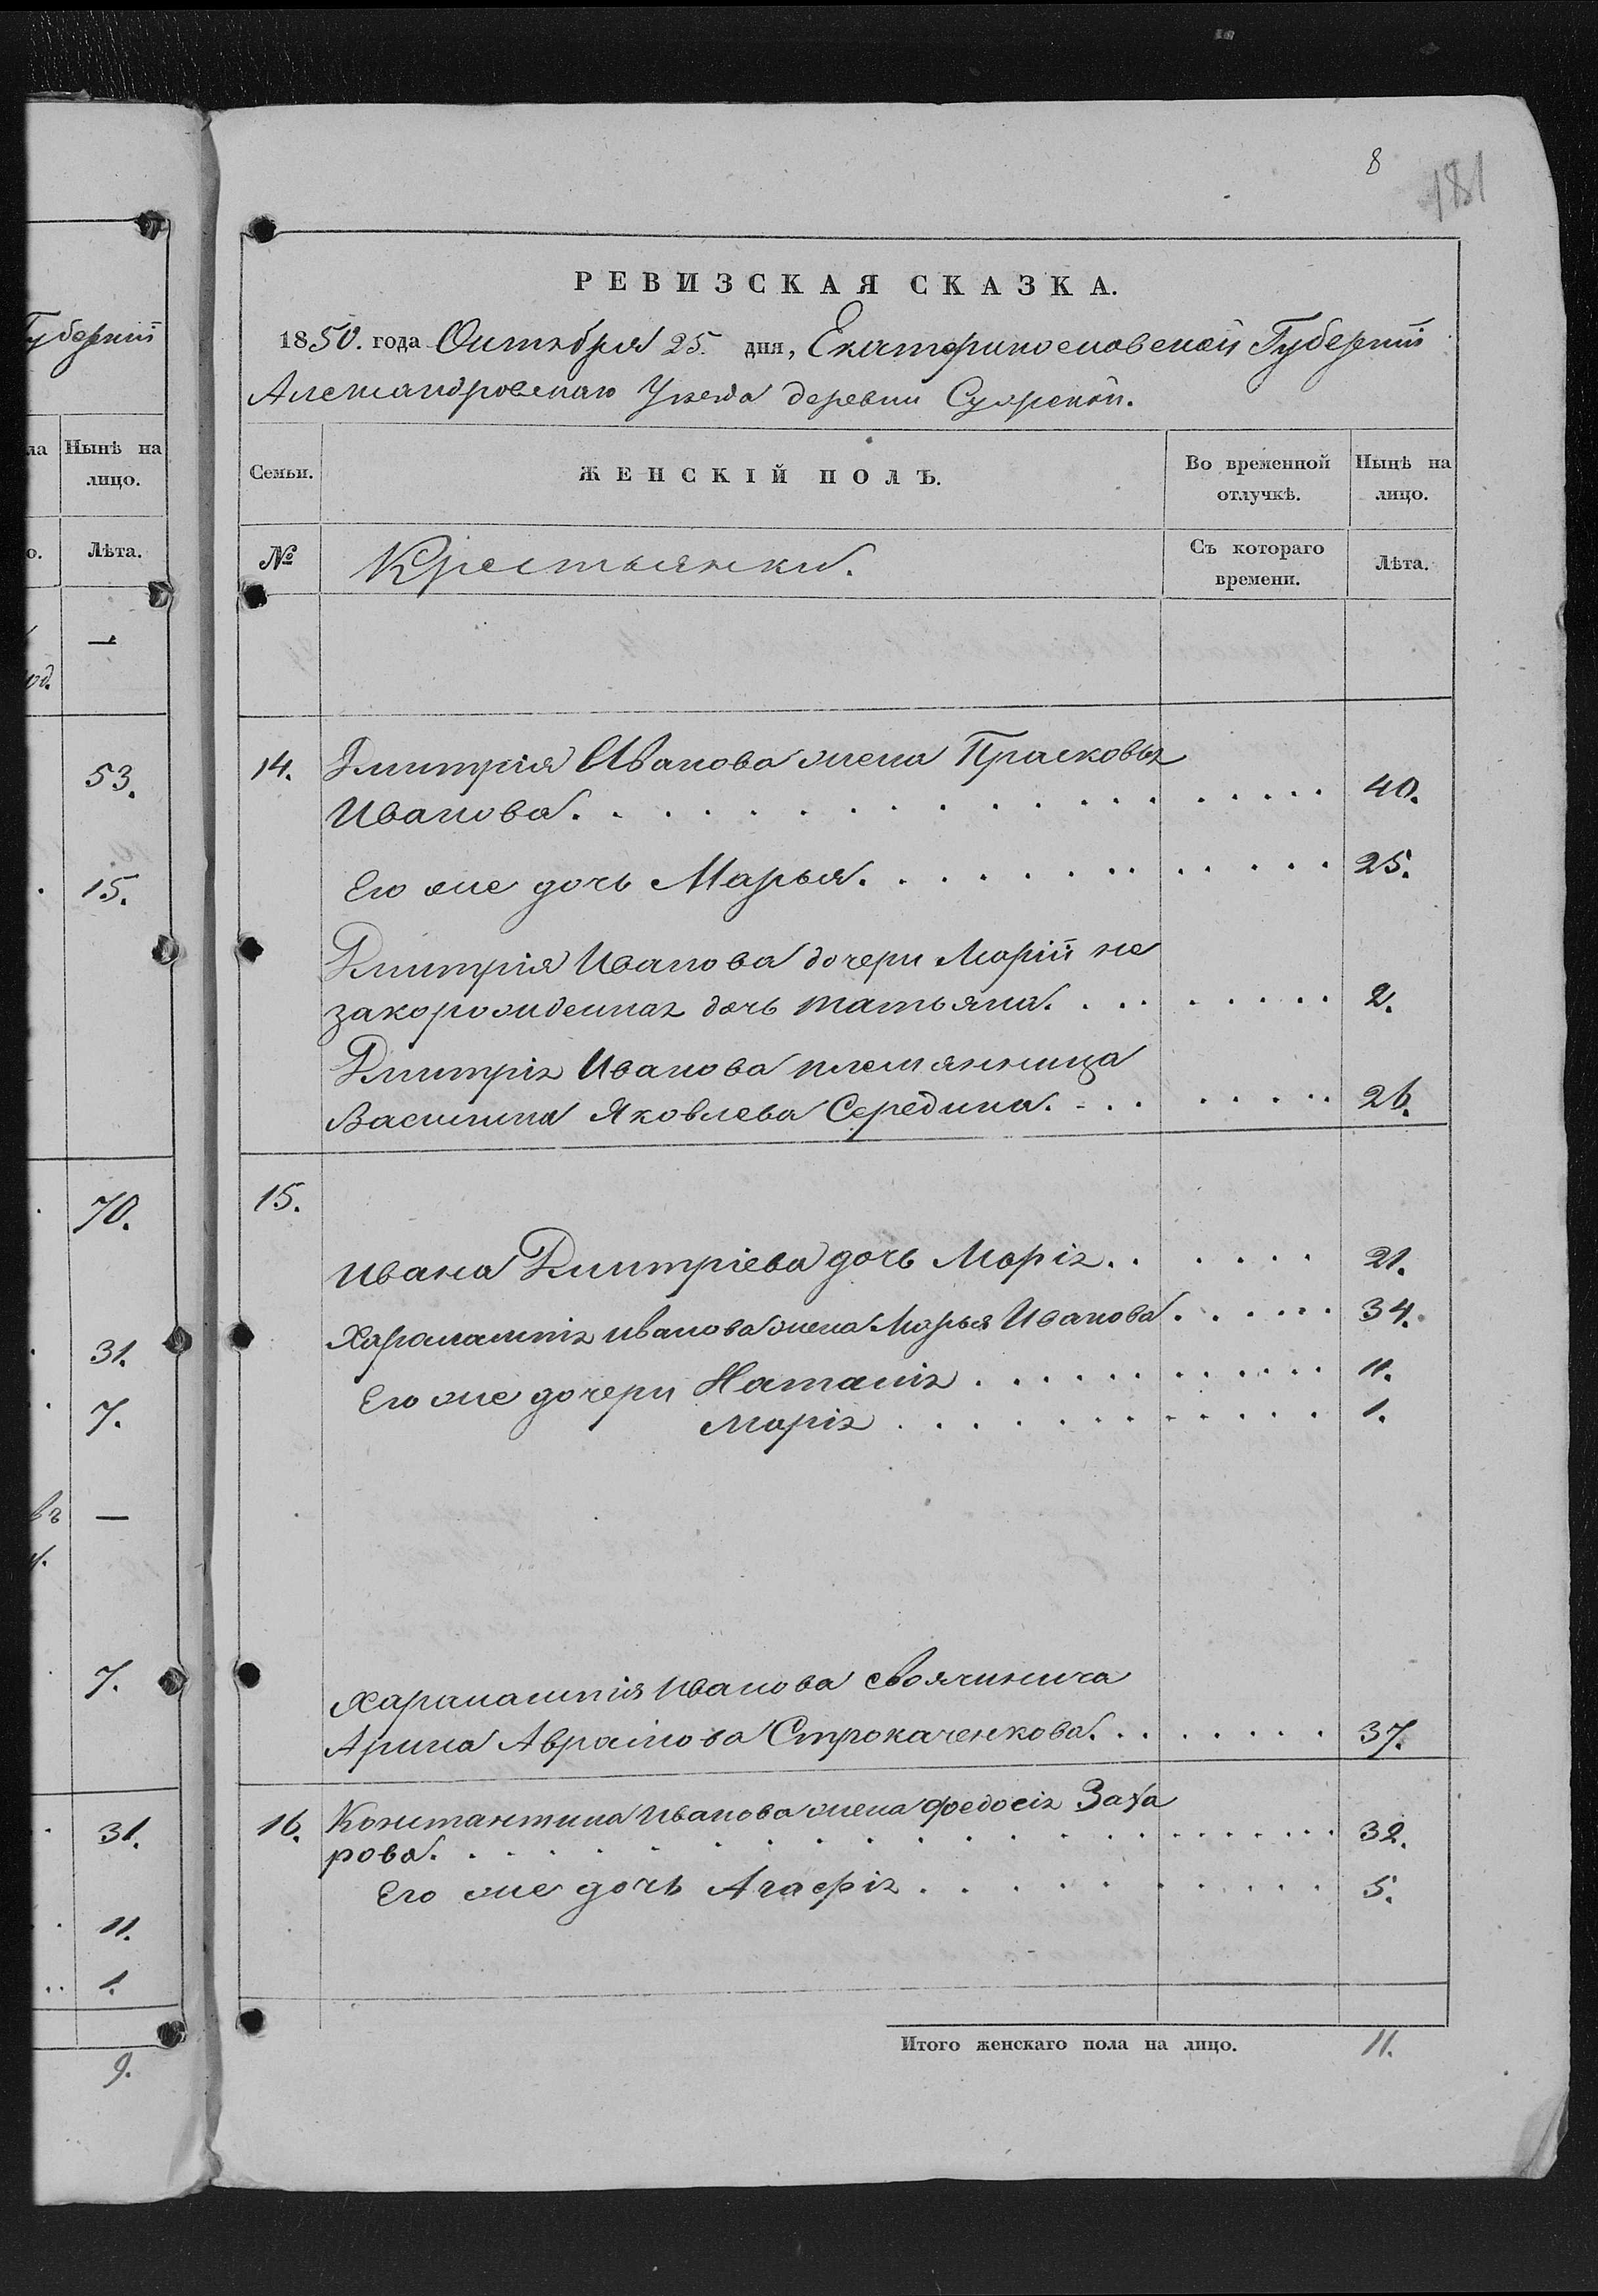 8
181
РЕВИЗСКАЯ СКАЗКА.
1850. года Октября 25. дня, Екатеринославской Губерніи
Александровскаго Уезда деревни Суярской.
Семьи. ЖЕНСКІЙ ПОЛЪ. Во временной отлучкѣ. Нынѣ на лицо.
№ Крестьянки. Съ котораго времени. Лѣта.
14. Дмитрія Иванова жена Прасковья
Иванова. 40.
Его же дочь Марья. 25.
Дмитрія Иванова дочери Маріи не
закорожденная дочь Татьяна. 2.
Дмитрія Иванова племянница
Василина Яковлева Середина. 26.
15.
Ивана Дмитріева дочь Марія. 21.
Харалампія Иванова жена Марья Иванова. 34.
Его же дочери Наталія 11.
Марія 1.
Харалампія Иванова своячинича
Арина Авраімова Строкаченкова. 37.
16. Константина Иванова жена Федосія Заха
рова. 32.
Его же дочь Агафія 5.
Итого женскаго пола на лицо. 11.
Губерніи
ла Нынѣ на
лицо.
о. Лѣта.
—
од.
53.
15.
70.
31.
7.
въ —
7.
31.
11.
1.
9.